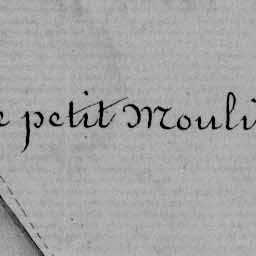 e petit Mouli